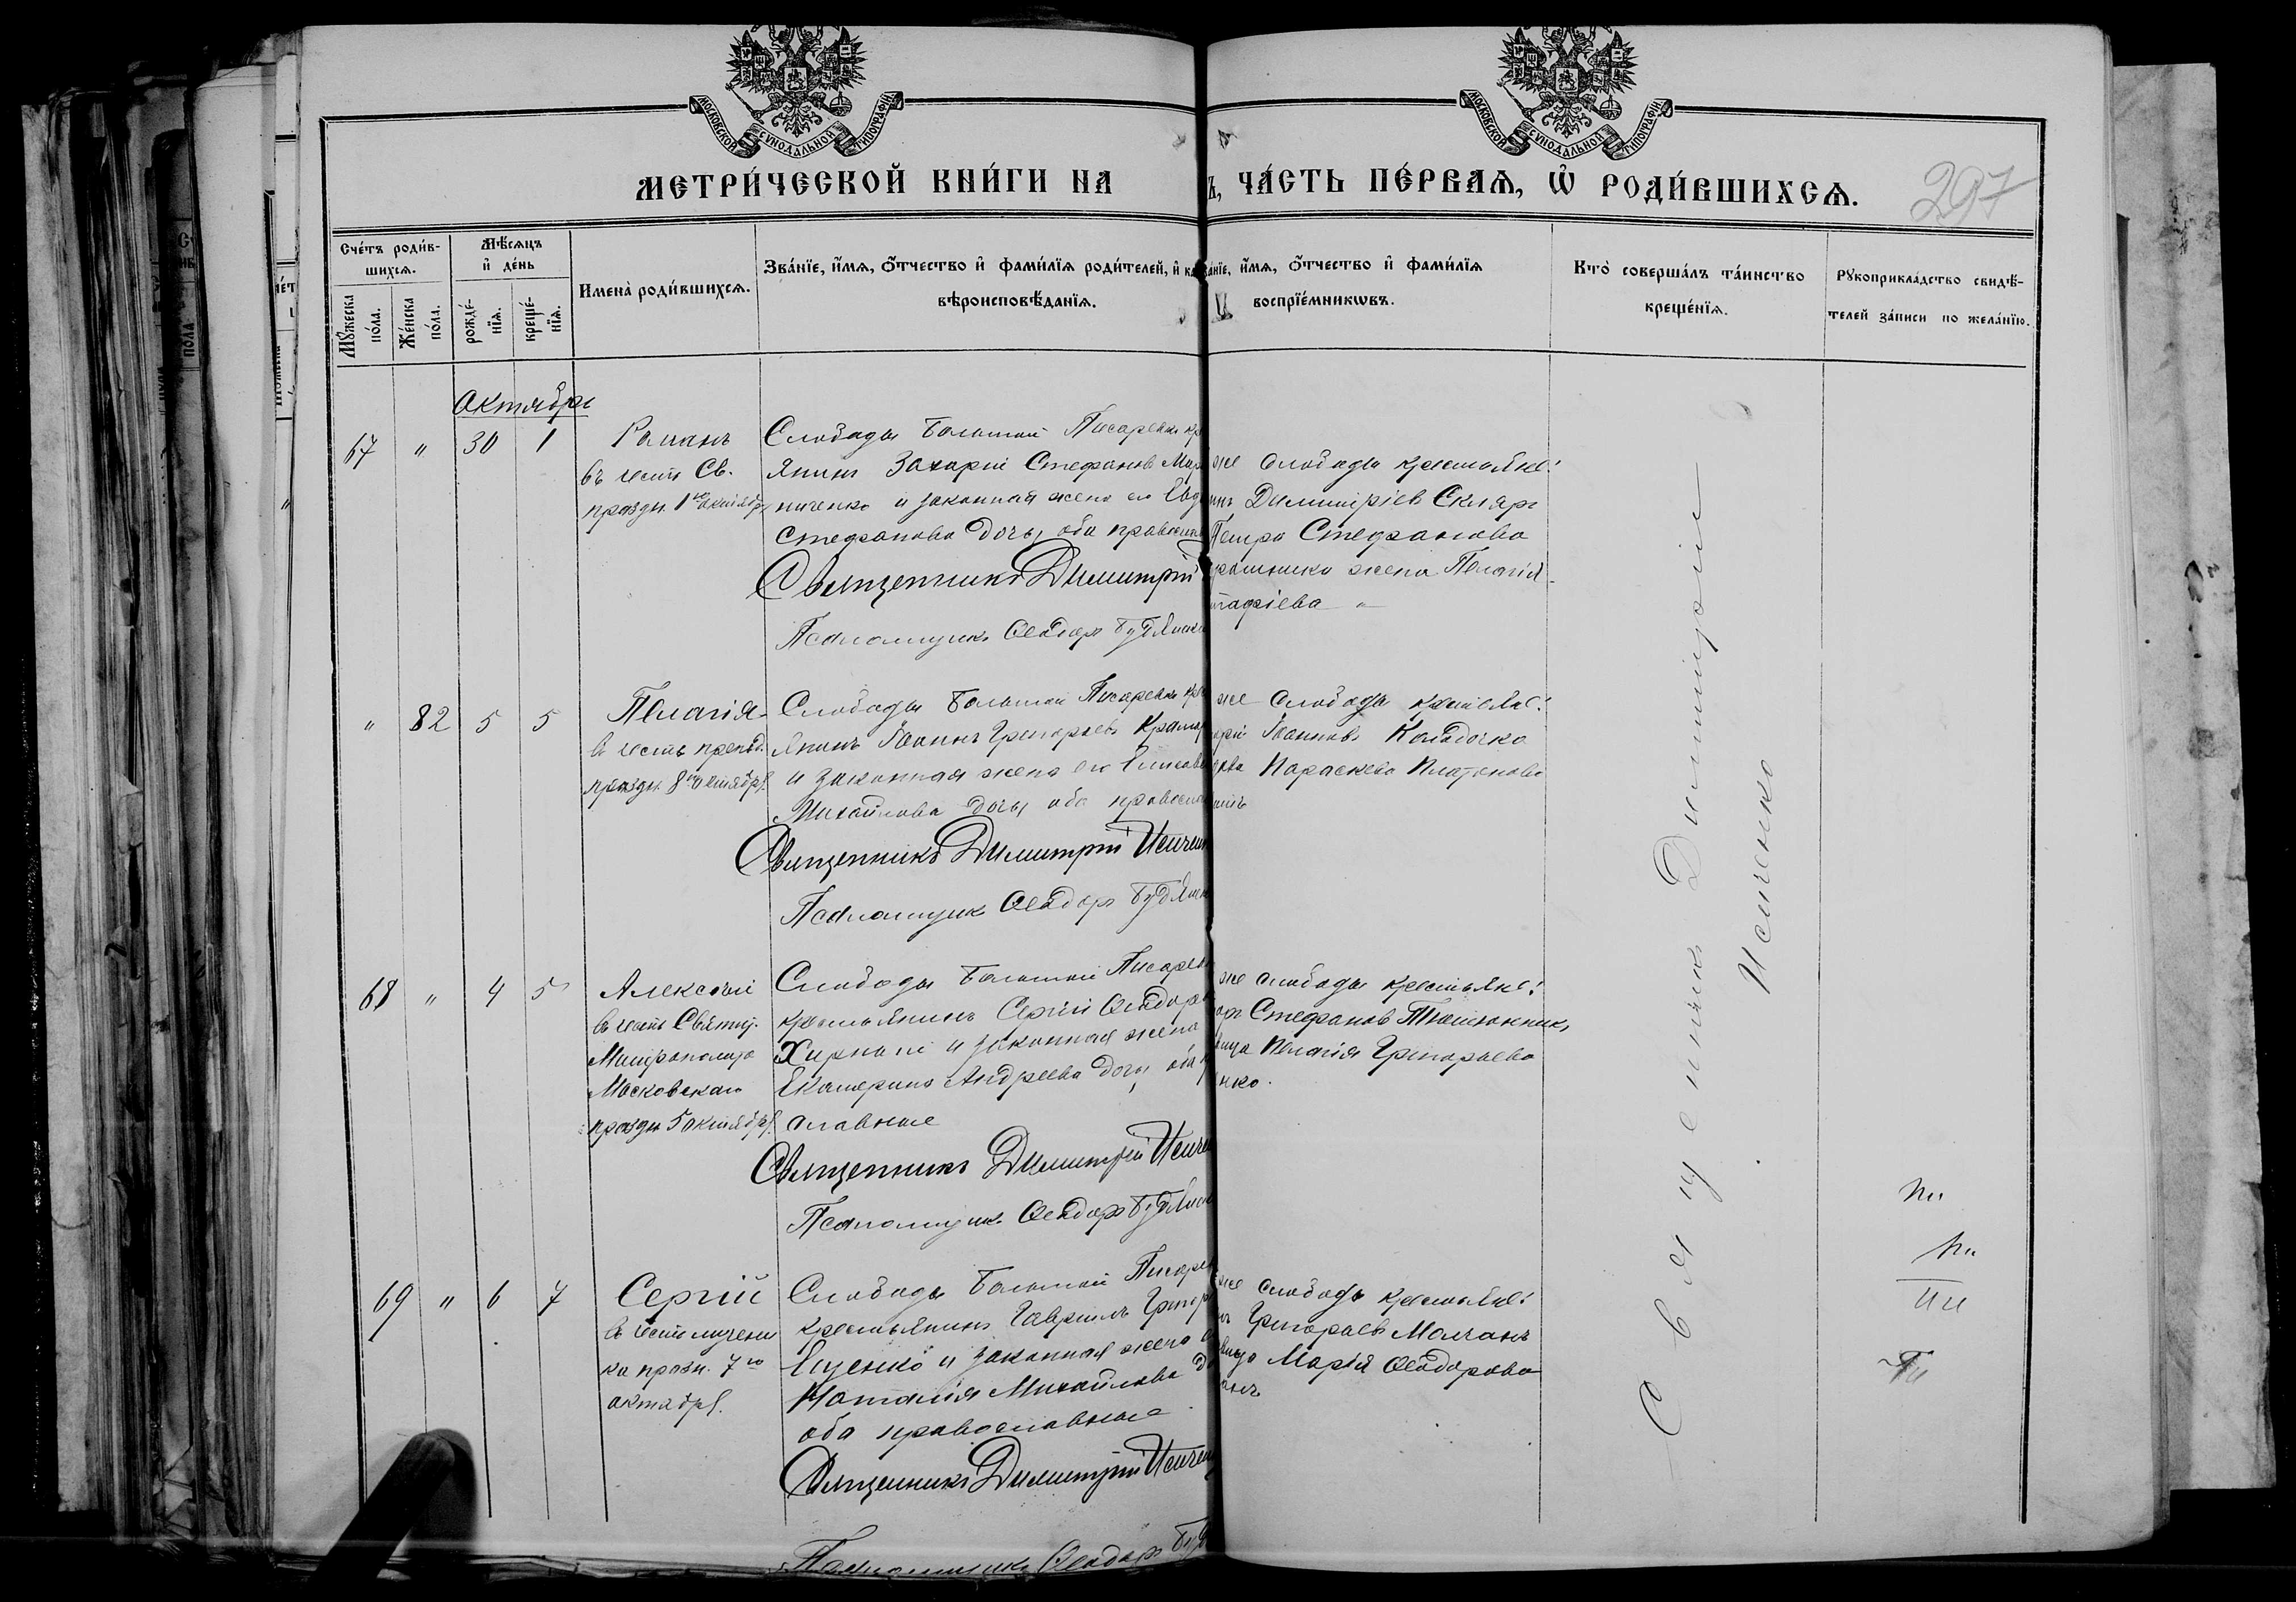 МОСКОВСКОЙ СѴНОДАЛЬНОЙ ТИПОГРАФІИ
МОСКОВСКОЙ СѴНОДАЛЬНОЙ ТИПОГРАФІИ
МЕТРИ́ЧЕСКОЙ КНИ́ГИ НА
Ъ, ЧА́СТЬ ПЕ́РВАѦ, Ѿ РОДИ́ВШИХСѦ.
297
Сче́тъ роди́в-
шихсѧ.
Мꙋ́жеска по́ла.
Же́нска по́ла.
Мѣ́сѧцъ
и҆ де́нь
рожде́-
нїѧ.
креще́-
нїѧ.
Имена̀ роди́вшихсѧ.
Зва́нїе, и҆́мѧ, ѻ҆́тчество и҆ фами́лїѧ роди́телей, и҆ ка
вѣроисповѣ́данїѧ.
а́нїе, и҆́мѧ, ѻ҆́тчество и҆ фами́лїѧ
воспрїе́мникѡвъ.
Кто̀ соверша́лъ та́инство
креще́нїѧ.
Рꙋкоприкла́дство свидѣ́-
телей за́писи по жела́нїю.
Октябрь
67 " 30 1
Романъ
въ честь Св.
праздн. 1го октября
Слободы Большой Писаревки кр
янинъ Захарій Стефановъ Мар
ниченко и законная жена его Евд
Стефанова дочь, оба православн
Священникъ Димитрій
Псаломщикъ Ѳеодоръ Будянск
же слободы крестьяне:
инъ Димитріевъ Скляръ
Петра Стефанова
жена Пелагія
" 82 5 5
Пелагія
въ честь препод.
праздн. 8го октября
Слободы Большой Писаревки кре
янинъ Іоаннъ Григорьевъ Крама
и законная жена его Елисаве
Михайлова дочь, оба правосла
Священникъ Димитрій Исиченк
Псаломщикъ Ѳеодоръ Будянск
же слободы крестьяне:
орій Іоанновъ Колодочка
дова Параскева Платонова
68 " 4 5
Алексѣй
въ честь Святит.
Митрополита
Московскаго
праздн. 5 октября
Слободы Большой Писарев
крестьянинъ Сергій Ѳеодоро
и законная жена
Екатерина Андреева дочь, оба п
славные
Священникъ Димитрій Исиче
Псаломщикъ Ѳеодоръ Будянск
же слободы крестьяне:
оръ Стефановъ Тютюнникъ
вица Пелагія Григорьева
нко.
69 " 6 7
Сергій
въ честь мучени
ка праздн. 7го
октября.
Слободы Большой Писаре
крестьянинъ Гавріилъ Григор
Ященко и законная жена е
Наталія Михайлова до
оба православные
Священникъ Димитрій Исиченк
Псаломщикъ Ѳеодоръ Буд
же слободы крестьяне:
нъ Григорьевъ Молчанъ
вица Марія Ѳеодорова
анъ
Священникъ Димитрій
Исиченко